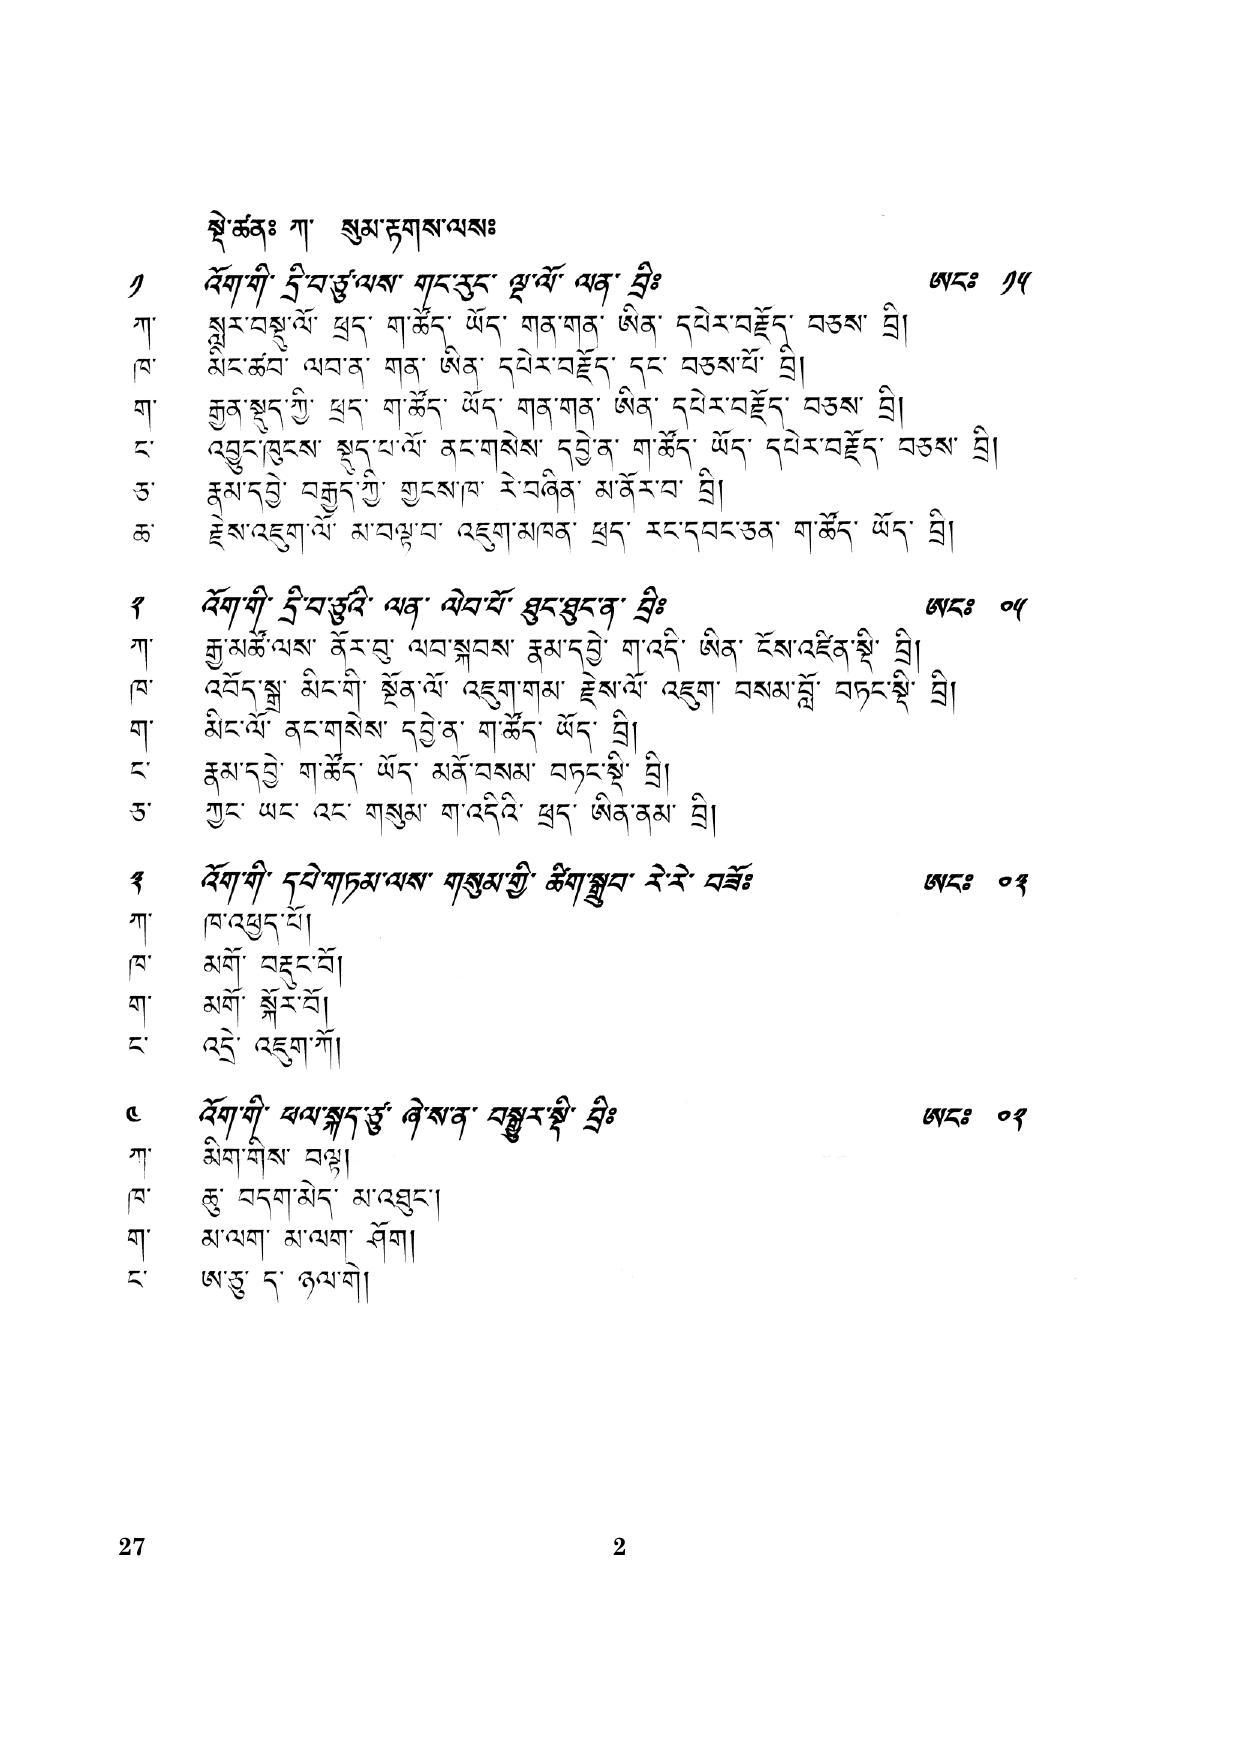 སྡེ་ཚན༔ ཀ་ སུམ་རྟགས་ལས༔
༡ འོག་གི་ དྲི་བ་ཙུ་ལས་ གང་རུང་ ལྔ་ལོ་ ལན་ བྲི༔ ཨང༔ ༡༥
ཀ་ སླར་བསྡུ་ལོ་ ཕྲད་ ག་ཚོད་ ཡོད་ གན་གན་ ཨིན་ དཔེར་བརྗོད་ བཅས་ བྲི།
ཁ་ མིང་ཚབ་ ལབ་ན་ གན་ ཨིན་ དཔེར་བརྗོད་ དང་ བཅས་པོ་ བྲི།
ག་ རྒྱན་སྡུད་ཀྱི་ ཕྲད་ ག་ཚོད་ ཡོད་ གན་གན་ ཨིན་ དཔེར་བརྗོད་ བཅས་ བྲི།
ང་ འབྱུང་ཁུངས་ སྡུད་པ་ལོ་ ནང་གསེས་ དབྱེ་ན་ ག་ཚོད་ ཡོད་ དཔེར་བརྗོད་ བཅས་ བྲི།
ཅ་ རྣམ་དབྱེ་ བརྒྱད་ཀྱི་ གྲངས་ཁ་ རེ་བཞིན་ མ་ནོར་བ་ བྲི།
ཆ་ རྗེས་འཇུག་ལོ་ མ་བལྟ་བ་ འཇུག་མཁན་ ཕྲད་ རང་དབང་ཅན་ ག་ཚོད་ ཡོད་ བྲི།
༢ འོག་གི་ དྲི་བ་ཙུའི་ ལན་ ལེབ་པོ་ ཐུང་ཐུང་ན་ བྲི༔ ཨང༔ ༠༥
ཀ་ རྒྱ་མཚོ་ལས་ ནོར་བུ་ ལབ་སྐབས་ རྣམ་དབྱེ་ ག་འདི་ ཨིན་ ངོས་འཛིན་སྡི་ བྲི།
ཁ་ འབོད་སྒྲ་ མིང་གི་ སྔོན་ལོ་ འཇུག་གམ་ རྗེས་ལོ་ འཇུག་ བསམ་བློ་ བཏང་སྡི་ བྲི།
ག་ མིང་ལོ་ ནང་གསེས་ དབྱེ་ན་ ག་ཚོད་ ཡོད་ བྲི།
ང་ རྣམ་དབྱེ་ ག་ཚོད་ ཡོད་ མནོ་བསམ་ བཏང་སྡི་ བྲི།
ཅ་ ཀྱང་ ཡང་ འང་ གསུམ་ ག་འདིའི་ ཕྲད་ ཨིན་ནམ་ བྲི།
༣ འོག་གི་ དཔེ་གཏམ་ལས་ གསུམ་གྱི་ ཚིག་སྒྲུབ་ རེ་རེ་ བཟོ༔ ཨང༔ ༠༣
ཀ་ ཁ་འཕྱད་པོ།
ཁ་ མགོ་ བརྡུང་བོ།
ག་ མགོ་ སྐོར་བོ།
ང་ འདྲེ་ འཇུག་ཀོ།
༤ འོག་གི་ ཕལ་སྐད་ཙུ་ ཞེ་ས་ན་ བསྒྱུར་སྡི་ བྲི༔ ཨང༔ ༠༢
ཀ་ མིག་གིས་ བལྟ།
ཁ་ ཆུ་ བདག་མེད་ མ་འཐུང་།
ག་ མ་ལག་ མ་ལག་ ཤོག།
ང་ ཨ་ཅུ་ ད་ ཉལ་གེ།
27 2